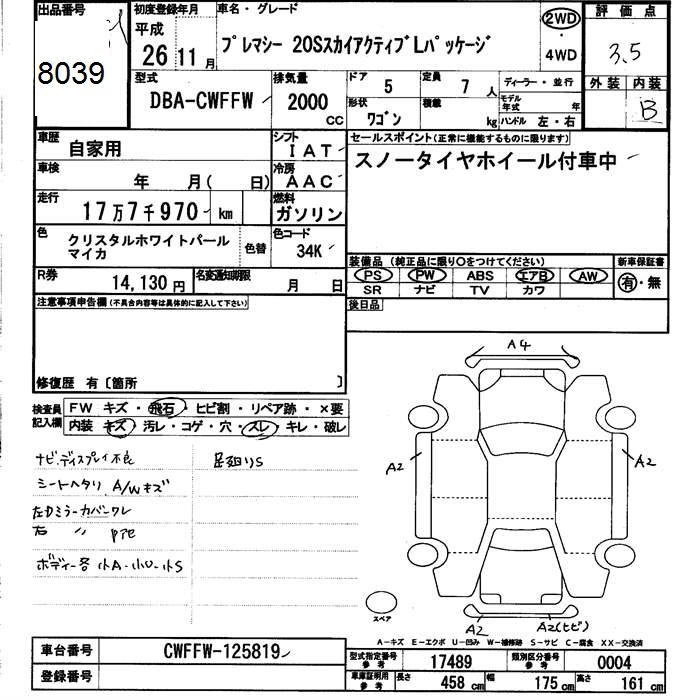 出品番号
8039
初度登録年月
平成
26 11月
車名・グレード
プレマシー 20SスカイアクティブLパッケージ
2WD
・
4WD
評価点
3.5
外装 内装
B
型式
DBA-CWFFW
排気量
2000
CC
ドア
5
定員
7 人
形状
ワゴン
積載
kg
ディーラー・並行
モデル年式 年
ハンドル 左・右
車歴
自家用
シフト
IAT
車検
年 月( 日)
冷房
AAC
走行
17万7千970 km
燃料
ガソリン
色
クリスタルホワイトパール
マイカ
色替
色コード
34K
R券
14,130円
名変通知期限
月 日
セールスポイント(正常に機能するものに限ります)
スノータイヤホイール付車中
装備品(純正品に限り○をつけてください)
PS PW ABS エアB AW
SR ナビ TV カワ
新車保証書
有・無
後日品
注意事項申告欄(不具合内容等は具体的に記入して下さい)
修復歴 有〔箇所 〕
検査員
記入欄
FW キズ・飛石・ヒビ割・リペア跡・×要
内装 キズ・汚レ・コゲ・穴・スレ・キレ・破レ
ナビ.ディスプレイ不良
足廻りS
シートヘタリ A/Wキズ
左Dミラーカバーワレ
右 〃
ボディー各 小A-小U-小S
A4
A2
A2
A2
A2(ヒビ)
スペア
A-キズ E-エクボ U-凹み W-補修跡 S-サビ C-腐食 XX-交換済
車台番号
CWFFW-125819
登録番号
型式指定番号
参考
17489
類別区分番号
参考
0004
車庫証明用
参考
長さ 458 cm
幅 175 cm
高さ 161 cm